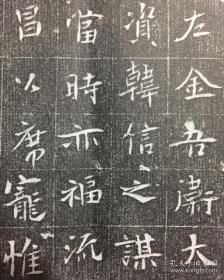 左金吾衛大
資韓信之謀
當時亦福流
昌以席寵惟